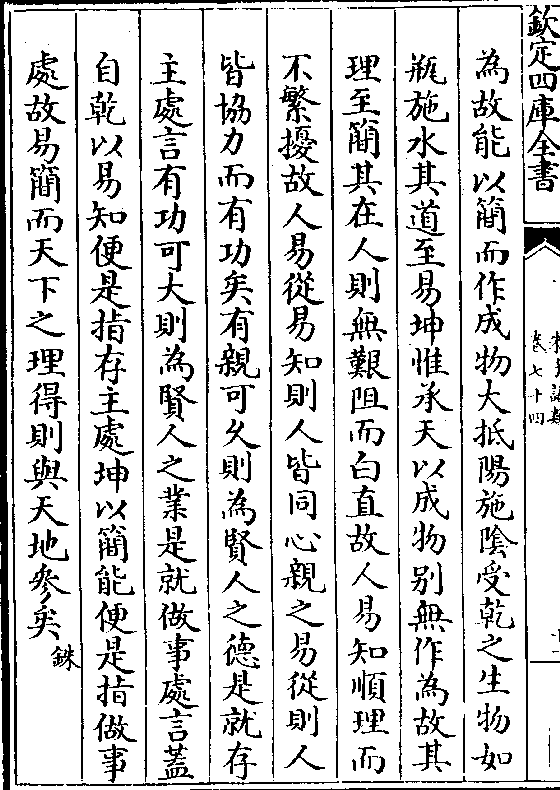 欽定四庫全書
卷七十四
為故能以簡而作成物大抵陽施陰受乾之生物如
瓶施水其道至易坤惟承天以成物别無作為故其
理至簡其在人則無艱阻而白直故人易知順理而
不繁擾故人易從易知則人皆同心親之易從則人
皆協力而有功矣有親可久則為賢人之德是就存
主處言有功可大則為賢人之業是就做事處言葢
自乾以易知便是指存主處坤以簡能便是指做事
處故易簡而天下之理得則與天地參矣銖